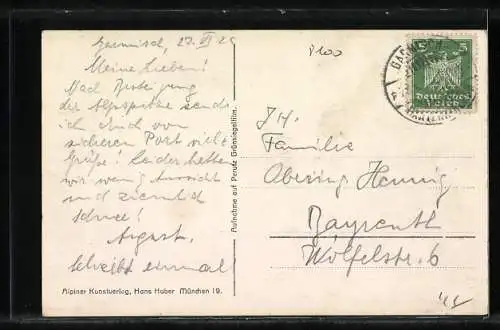 Garmisch, 27. VI 26
Meine Lieben!
Nach Besteigung
der Alpspitze sende
ich Euch von
sicherem Port viele
Grüße! Leider hatten
wir wenig Aussicht
und ziemlich
Schnee!
August.
Schreibt einmal
Alpiner Kunstverlag, Hans Huber München 19.
Aufnahme auf Perutz Grünsiegelfilm.
5 5
Deutsches
Reich
GARMISCH
Familie
Obering Hennig
Bayreuth
Wolfstr. 6